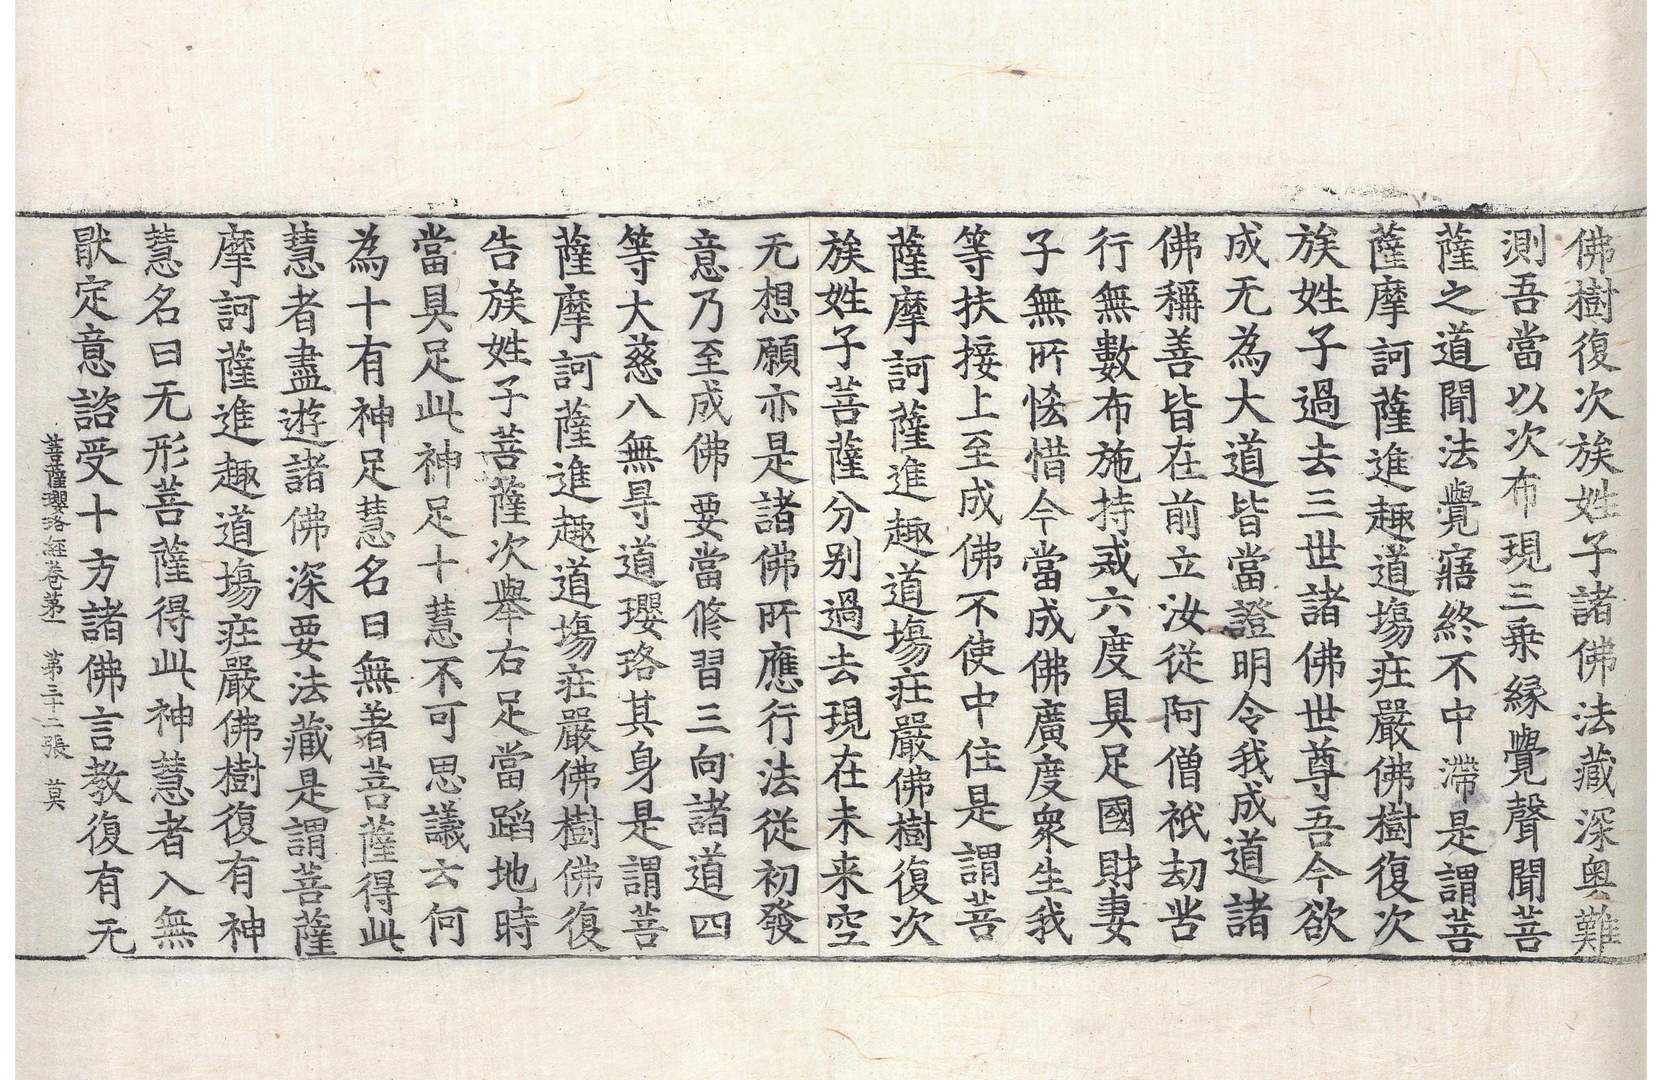 佛樹復次族姓子諸佛法藏深奧難
測吾當以次布現三乗縁覺聲聞菩
薩之道聞法覺寤終不中滯是謂菩
薩摩訶薩進趣道場莊嚴佛樹復次
族姓子過去三世諸佛世尊吾今欲
成无為大道皆當證明令我成道諸
佛稱善皆在前立汝從阿僧祇劫苦
行無數布施持戒六度具足國財妻
子無所悋惜今當成佛廣度衆生我
等扶接上至成佛不使中住是謂菩
薩摩訶薩進趣道場莊嚴佛樹復次
族姓子菩薩分别過去現在未来空
无想願亦是諸佛所應行法從初發
意乃至成佛要當修習三向諸道四
等大慈八無㝵道瓔珞其身是謂菩
薩摩訶薩進趣道場莊嚴佛樹佛復
告族姓子菩薩次舉右足當蹈地時
當具足此神足十慧不可思議云何
為十有神足慧名曰無著菩薩得此
慧者盡遊諸佛深要法藏是謂菩薩
摩訶薩進趣道場莊嚴佛樹復有神
慧名曰无形菩薩得此神慧者入無
猒定意諮受十方諸佛言教復有无
菩薩瓔珞經卷苐一 第三十二張 莫